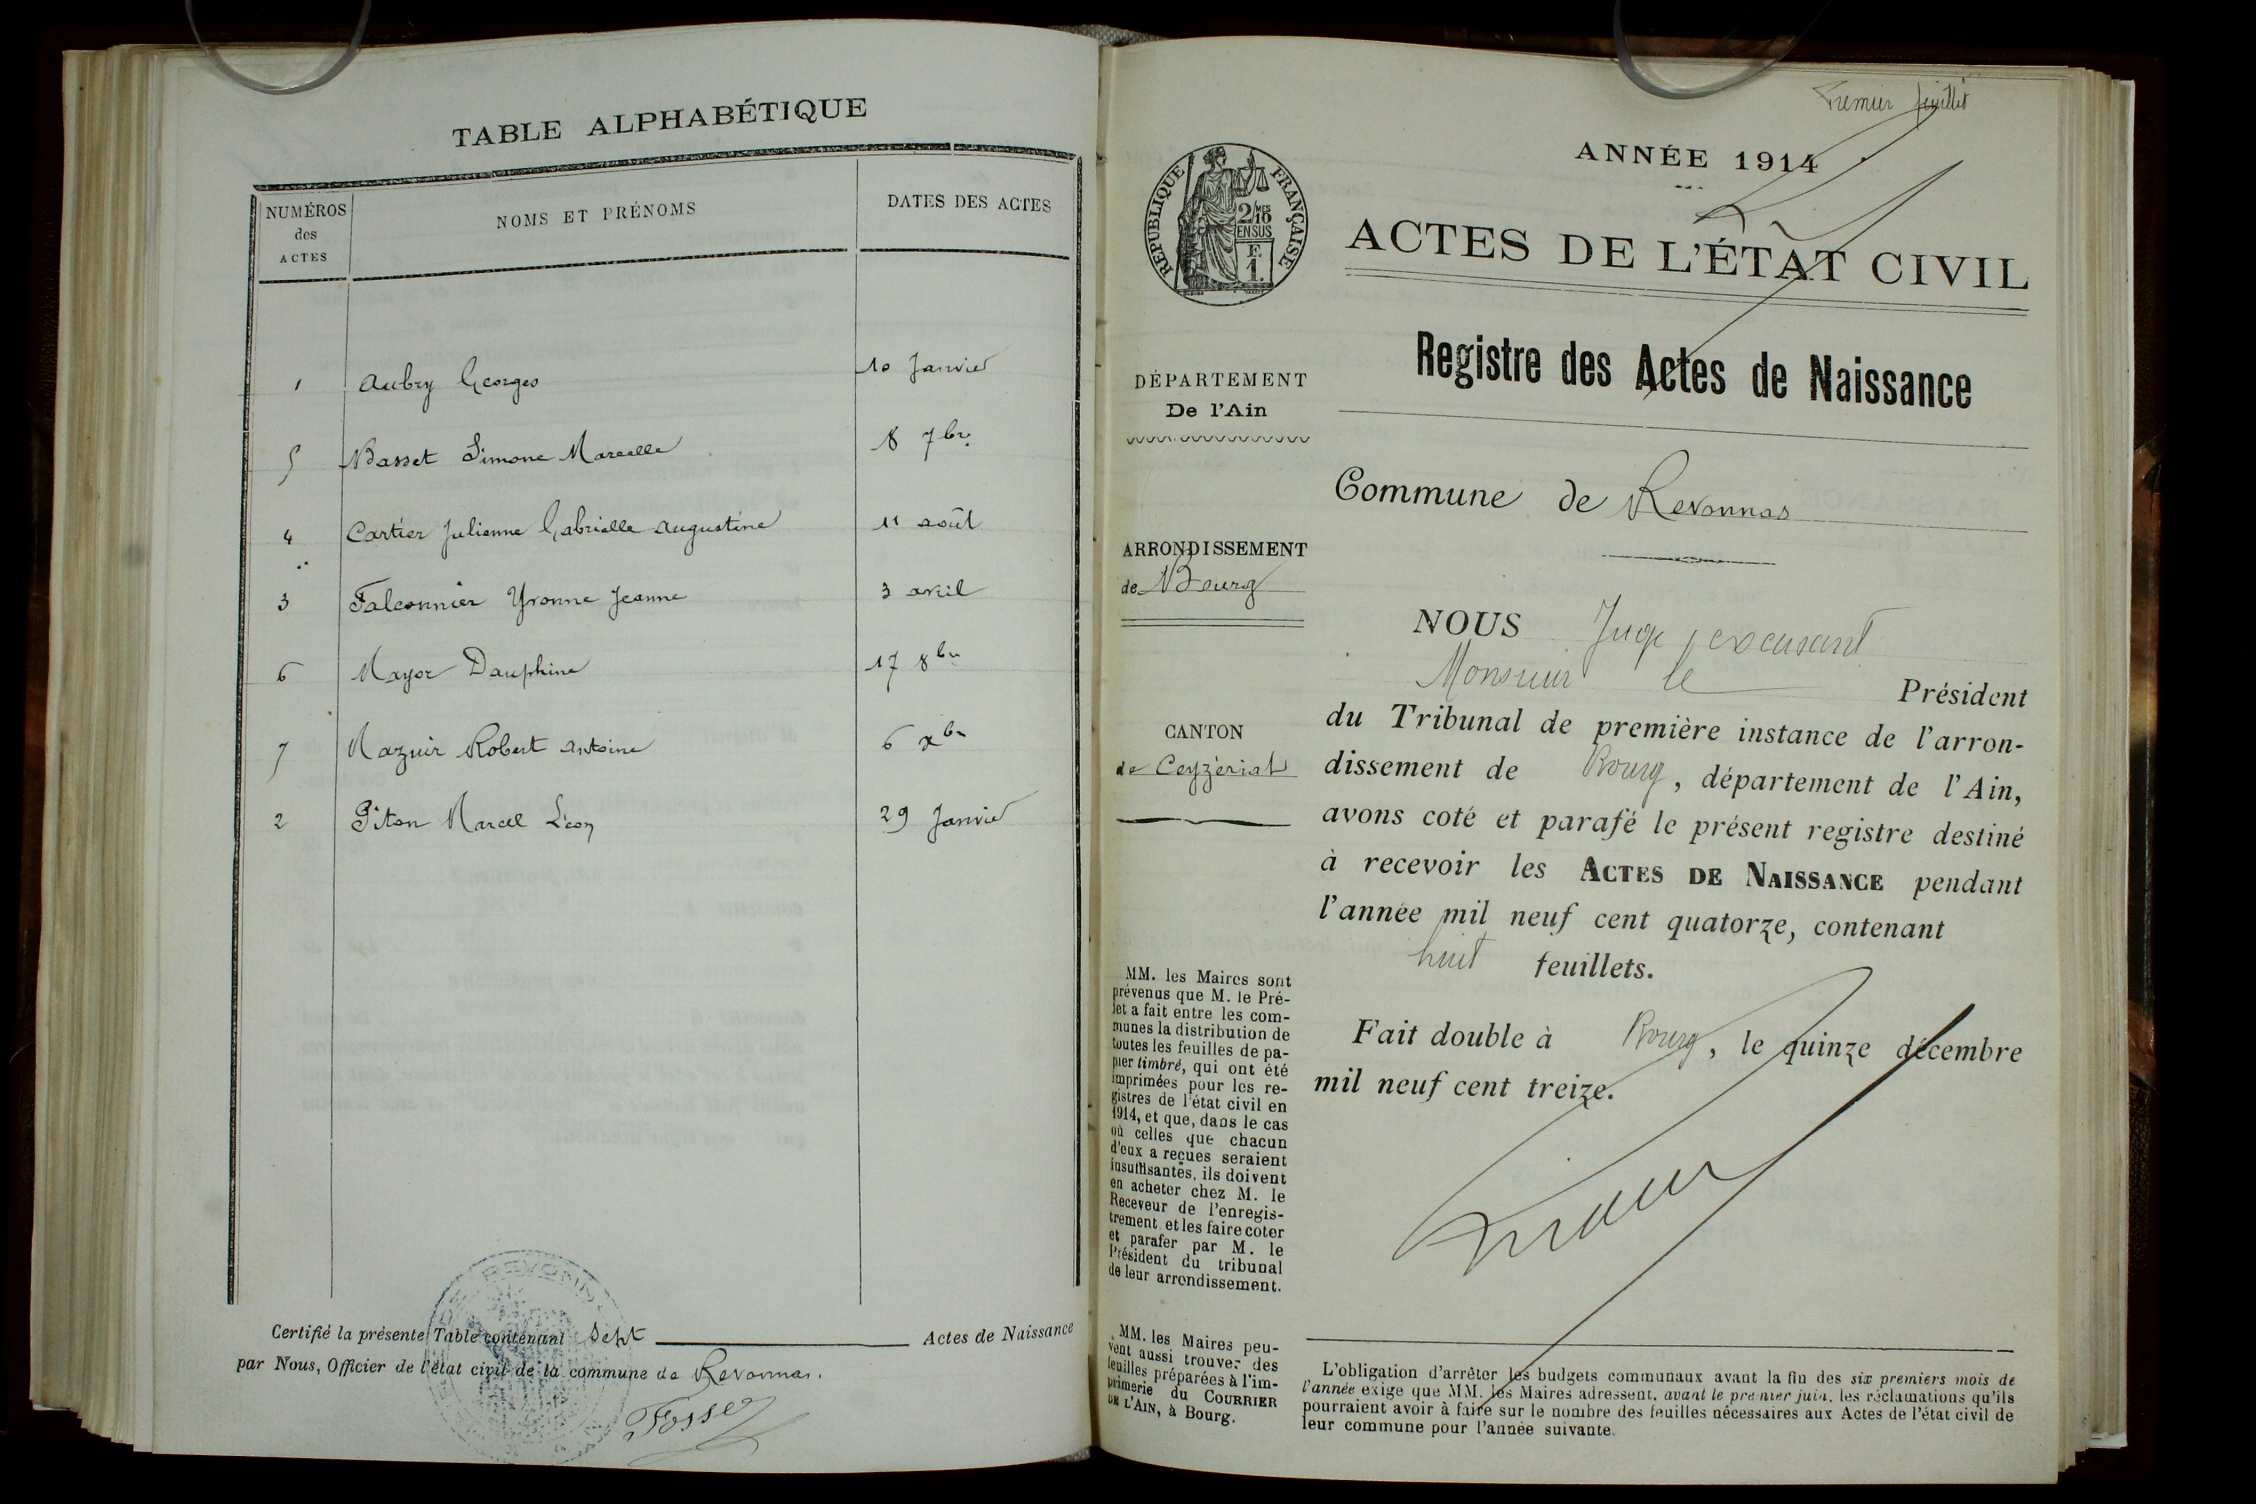 TABLE ALPHABÉTIQUE
NUMÉROS des ACTES
NOMS ET PRÉNOMS
DATES DES ACTES
1 Aubry Georges 10 Janvier
5 Basset Simone Marcelle 8 7bre
4 Cartier Julienne Gabrielle Augustine 11 août
3 Falconnier Yvonne Jeanne 3 avril
6 Mayor Dauphine 17 8bre
7 Mazuir Robert Antoine 6 xbre
2 Piton Marcel Léon 29 Janvier
Certifié la présente Table contenant Sept Actes de Naissance
par Nous, Officier de l'état civil de la commune de Revonnas.
Premier feuillet
ANNÉE 1914
RÉPUBLIQUE FRANÇAISE
2/10MES
EN SUS
F.
1.
ACTES DE L'ÉTAT CIVIL
Registre des Actes de Naissance
DÉPARTEMENT
De l'Ain
Commune de Revonnas
ARRONDISSEMENT
de Bourg
CANTON
de Ceyzériat
NOUS Juge, excusant
Monsieur le Président
du Tribunal de première instance de l'arron-
dissement de Bourg, département de l'Ain,
avons coté et parafé le présent registre destiné
à recevoir les ACTES DE NAISSANCE pendant
l'année mil neuf cent quatorze, contenant
huit feuillets.
Fait double à Bourg, le quinze décembre
mil neuf cent treize.
MM. les Maires sont
prévenus que M. le Pré-
fet a fait entre les com-
munes la distribution de
toutes les feuilles de pa-
pier timbré, qui ont été
imprimées pour les re-
gistres de l'état civil en
1914, et que, dans le cas
où celles que chacun
d'eux a reçues seraient
insuffisantes, ils doivent
en acheter chez M. le
Receveur de l'enregis-
trement et les faire coter
et parafer par M. le
Président du tribunal
de leur arrondissement.
MM. les Maires peu-
vent aussi trouver des
feuilles préparées à l'im-
primerie du COURRIER
DE L'AIN, à Bourg.
L'obligation d'arrêter les budgets communaux avant la fin des six premiers mois de
l'année exige que MM. les Maires adressent, avant le premier juin, les réclamations qu'ils
pourraient avoir à faire sur le nombre des feuilles nécessaires aux Actes de l'état civil de
leur commune pour l'année suivante.